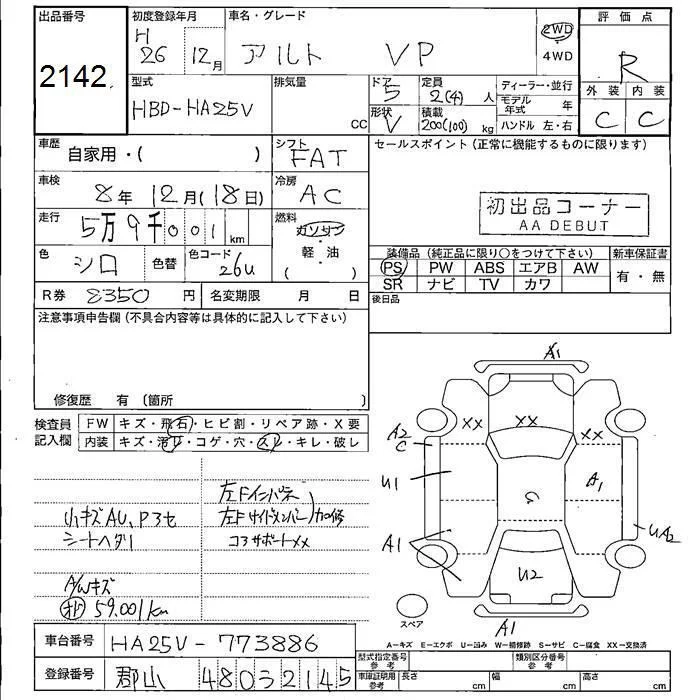 出品番号
2142
初度登録年月
H
26 12月
車名・グレード
アルト VP
2WD
4WD
評価点
R
外装 内装
C C
型式
HBD-HA25V
排気量
CC
ドア
5
形状
V
定員
2(4) 人
積載
200(100) kg
ディーラー・並行
モデル年式 年
ハンドル 左・右
車歴
自家用・( )
シフト
FAT
車検
8年 12月(18日)
冷房
AC
走行
5万9千001 km
燃料
ガソリン
軽・油
( )
色
シロ
色替
色コード
26U
R券 8350 円
名変期限 月 日
セールスポイント(正常に機能するものに限ります)
初出品コーナー
AA DEBUT
装備品(純正品に限り○をつけて下さい)
PS PW ABS エアB AW
SR ナビ TV カワ
新車保証書
有・無
後日品
注意事項申告欄(不具合内容等は具体的に記入して下さい)
修復歴 有(箇所 )
検査員
記入欄
FW キズ・飛石・ヒビ割・リペア跡・X要
内装 キズ・汚レ・コゲ・穴・スレ・キレ・破レ
小キズAU、P3セ
シートヘタリ
A/Wキズ
オド 59.001km
左Fインパネ
左Fサイドメンバー)加修
コアサポートXX
A1
XX
XX
XX
A2
C
U1
A1
C
A1
UA2
U2
A1
スペア
A-キズ E-エクボ U-凹み W-補修跡 S-サビ C-腐食 XX-交換済
車台番号 HA25V-773886
登録番号 郡山 480 32145
型式指定番号
参考
類別区分番号
参考
車庫証明用
参考
長さ cm
幅 cm
高さ cm